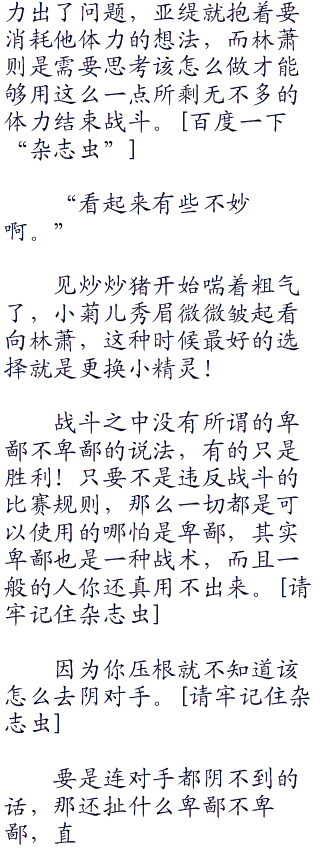 力出了问题，亚缇就抱着要
消耗他体力的想法，而林萧
则是需要思考该怎么做才能
够用这么一点所剩无不多的
体力结束战斗。[百度一下
“杂志虫”]
“看起来有些不妙
啊。”
见炒炒猪开始喘着粗气
了，小菊儿秀眉微微皱起看
向林萧，这种时候最好的选
择就是更换小精灵！
战斗之中没有所谓的卑
鄙不卑鄙的说法，有的只是
胜利！只要不是违反战斗的
比赛规则，那么一切都是可
以使用的哪怕是卑鄙，其实
卑鄙也是一种战术，而且一
般的人你还真用不出来。[请
牢记住杂志虫]
因为你压根就不知道该
怎么去阴对手。[请牢记住杂
志虫]
要是连对手都阴不到的
话，那还扯什么卑鄙不卑
鄙，直